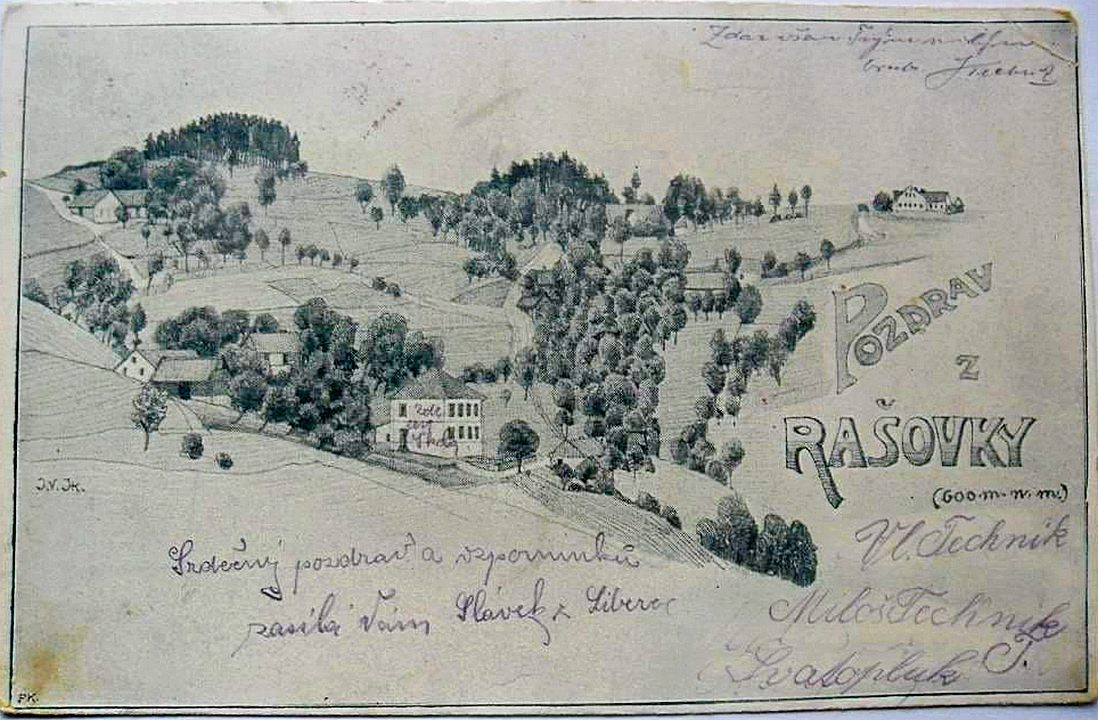 Zdar všem
POZDRAV
Z
RAŠOVKY
(600 m. n. m.)
J.V.Jk.
Srdečný pozdrav a vzpomínku
zasílá Vám Slávek z Liberec
Vl. Technik
Miloš Technik
Svatopluk T.
PK.